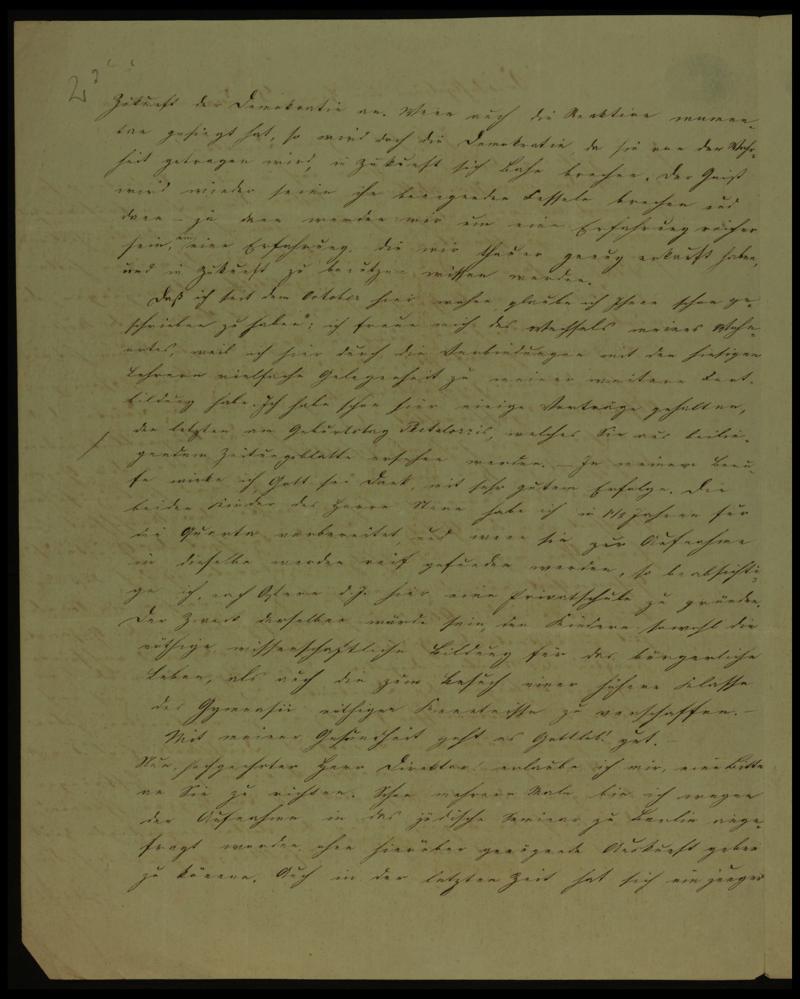 Zukunft der Demokratie an. Wenn auch die Reaktion momen-
tan gesiegt hat, so wird doch die Demokratie da sie von der Wahr-
heit getragen wird, in Zukunft sich Bahn brechen. Der Geist
wird wieder seine ihn beengenden Fesseln brechen und
dann – ja dann werden wir um eine Erfahrung reicher
sein, um eine Erfahrung, die wir theuer genug erkauft haben,
und in Zukunft zu benutzen wissen werden.
Daß ich seit dem October hier wohne glaube ich Ihnen schon ge-
schrieben zu haben; ich freue mich des Wechsels meines Wohn-
ortes, weil ich hier durch die Verbindungen mit den hiesigen
Lehrern vielfache Gelegenheit zu meiner weitern Fort-
bildung habe. Ich habe schon hier einige Vorträge gehalten,
den letzten am Geburtstag Pestalozzis, welches Sie aus beilie-
gendem Zeitungsblatte ersehen werden. – In meinem Beru-
fe wirke ich, Gott sei Dank, mit sehr gutem Erfolge. Die
beiden Kinder des Herrn habe ich in 1½ Jahren für
die Quarta vorbereitet und wenn sie zur Aufnahme
in dieselbe werden reif gefunden werden, so beabsichti-
ge ich, nach Ostern d. J. hier eine Privatschule zu gründen.
Der Zweck derselben würde sein, den Kindern sowohl die
nöthige wissenschaftliche Bildung für das bürgerliche
Leben, als auch die zum Besuch einer höhern Klasse
des Gymnasii nöthigen Kenntnisse zu verschaffen. –
Mit meiner Gesundheit geht es Gottlob! gut. –
Nun, hochgeehrter Herr Direktor! erlaube ich mir, eine Bitte
an Sie zu richten. Schon mehrere Male bin ich wegen
der Aufnahme in das jüdische Seminar zu Berlin ange-
fragt worden, ohne hierüber genügende Auskunft geben
zu können. Auch in der letzten Zeit hat sich ein junger